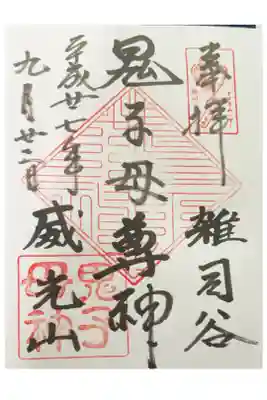 奉拝
雑司谷
鬼子母尊神
平成廿七年
九月廿二日
威光山